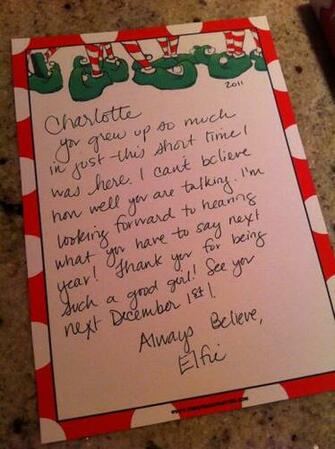 2011
Charlotte
you grew up so much
in just this short time I
was here. I can't believe
how well you are talking. I'm
looking forward to hearing
what you have to say next
year! Thank you for being
such a good girl! See you
next December 1st!
Always Believe,
Elfie